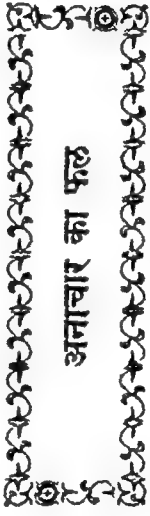 अनाचार का फल